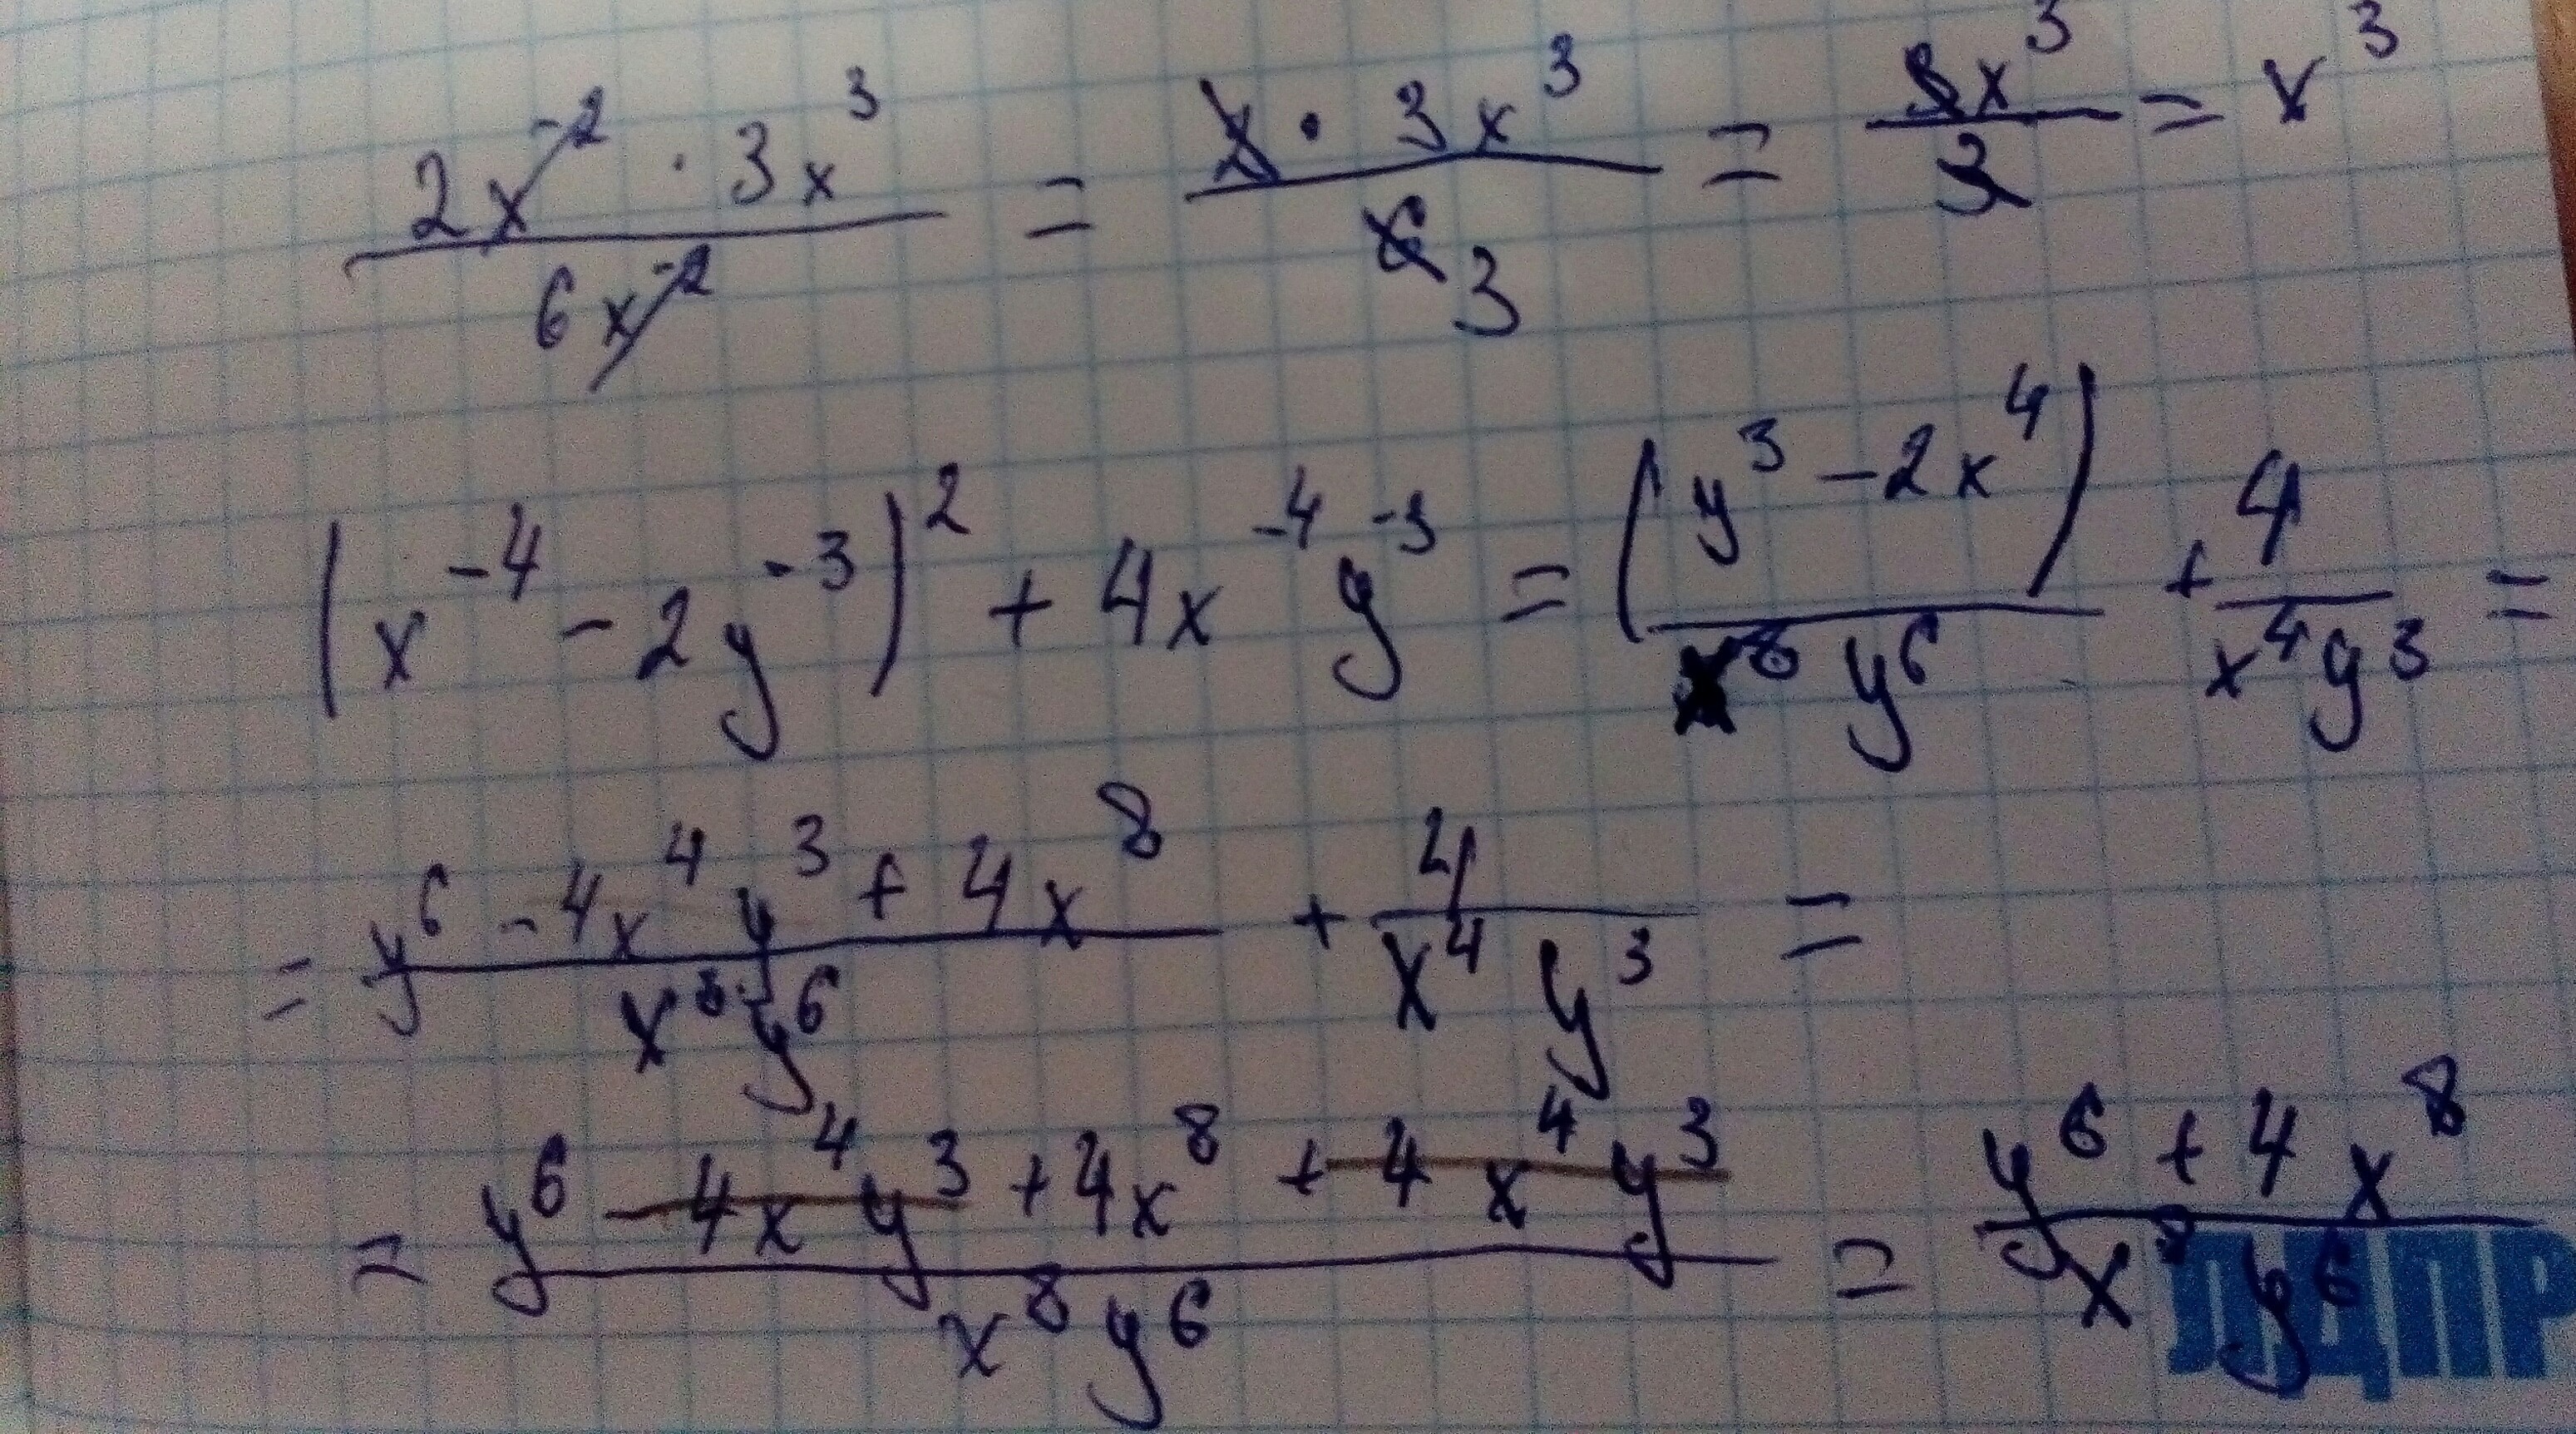 (2x⁻² · 3x³)/(6x⁻²) = (2 · 3x³)/(6 3) = (3x³)/3 = x³
(x⁻⁴ - 2y⁻³)² + 4x⁻⁴y⁻³ = (y³ - 2x⁴)/(x⁸y⁶) + 4/(x⁴y³) =
= (y⁶ - 4x⁴y³ + 4x⁸)/(x⁸y⁶) + 4/(x⁴y³) =
= (y⁶ - 4x⁴y³ + 4x⁸ + 4x⁴y³)/(x⁸y⁶) = (y⁶ + 4x⁸)/(x⁸y⁶)
ЛДПР